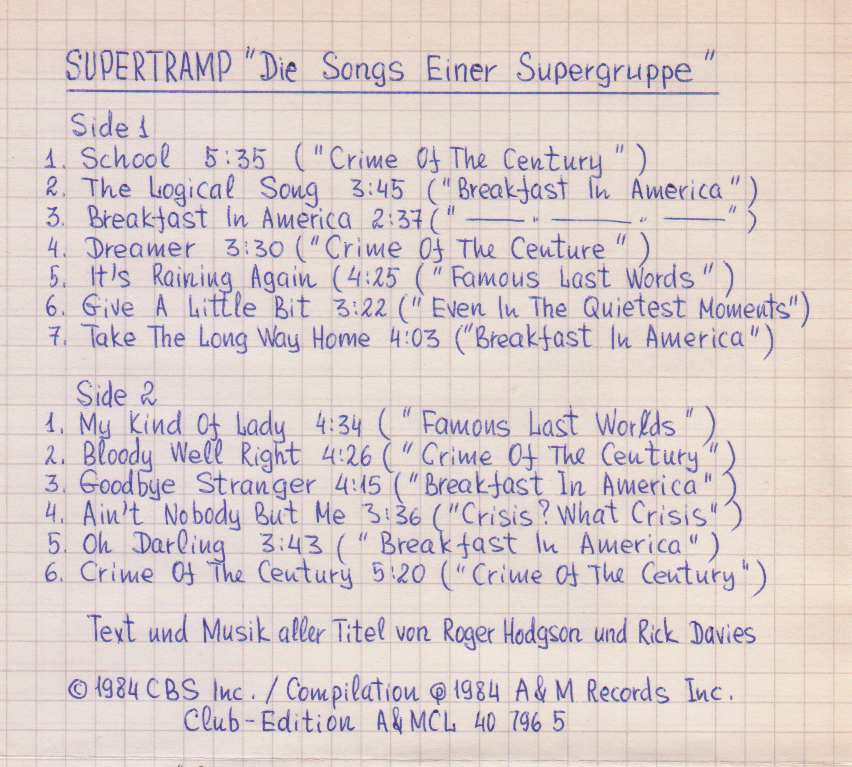 SUPERTRAMP "Die Songs Einer Supergruppe"
Side 1
1. School 5:35 ("Crime Of The Century")
2. The Logical Song 3:45 ("Breakfast In America")
3. Breakfast In America 2:37 (" —— " —— " —— ")
4. Dreamer 3:30 ("Crime Of The Centure")
5. It's Raining Again (4:25 ("Famous Last Words")
6. Give A Little Bit 3:22 ("Even In The Quietest Moments")
7. Take The Long Way Home 4:03 ("Breakfast In America")
Side 2
1. My Kind Of Lady 4:34 ("Famous Last Worlds")
2. Bloody Well Right 4:26 ("Crime Of The Century")
3. Goodbye Stranger 4:15 ("Breakfast In America")
4. Ain't Nobody But Me 3:36 ("Crisis? What Crisis")
5. Oh Darling 3:43 ("Breakfast In America")
6. Crime Of The Century 5:20 ("Crime Of The Century")
Text und Musik aller Titel von Roger Hodgson und Rick Davies
© 1984 CBS Inc. / Compilation ℗ 1984 A&M Records Inc.
Club-Edition A&MCL 40 796 5